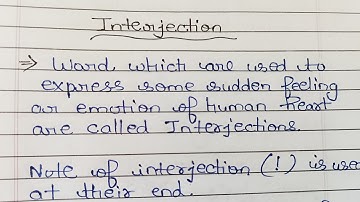 Interjection
⇒ Word, which are used to
express some sudden feeling
or emotion of human heart
are called Interjections.
Note of interjection (!) is use
at their end.